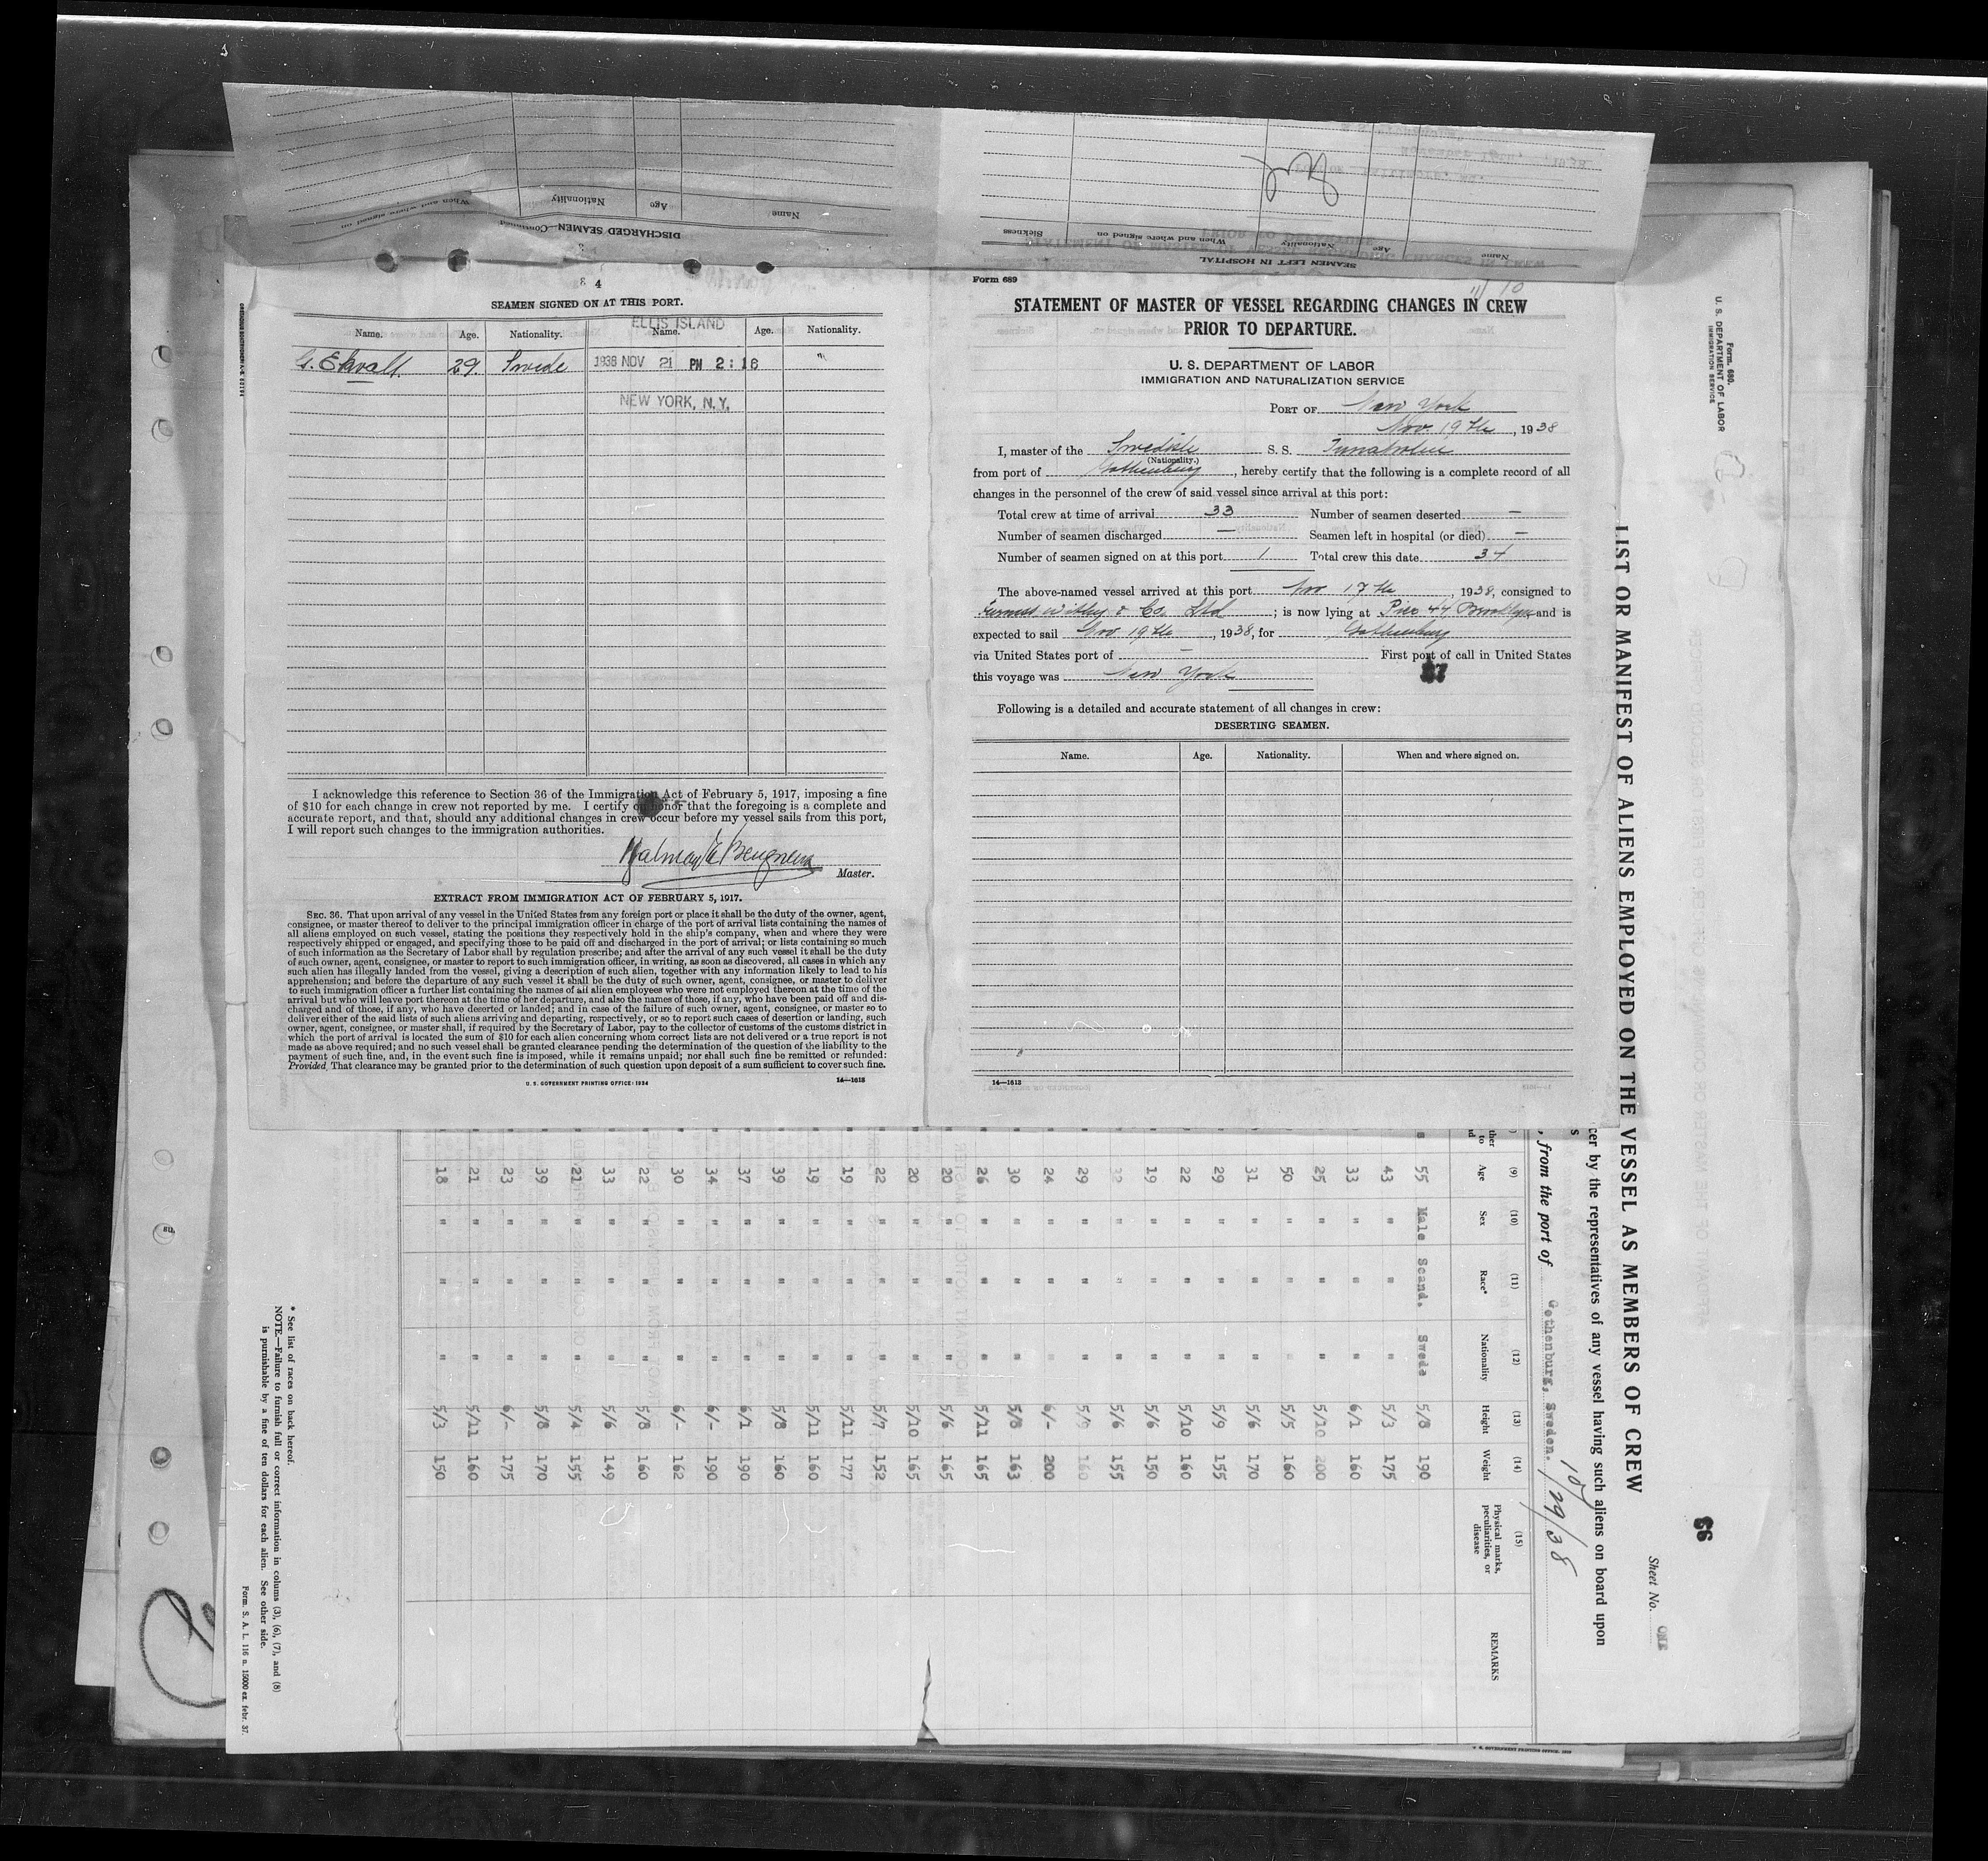 DISCHARGED SEAMEN—Continued
Name
Age
Nationality
When and where signed on
3
SEAMEN LEFT IN HOSPITAL
Name
Age
Nationality
When and where signed on
Sickness
4
SEAMEN SIGNED ON AT THIS PORT.
Name. Age. Nationality. Name. Age. Nationality.
ELLIS ISLAND
G. Ekvall. 29. Swede
1938 NOV 21 PM 2:16
NEW YORK, N.Y.
I acknowledge this reference to Section 36 of the Immigration Act of February 5, 1917, imposing a fine
of $10 for each change in crew not reported by me. I certify on honor that the foregoing is a complete and
accurate report, and that, should any additional changes in crew occur before my vessel sails from this port,
I will report such changes to the immigration authorities.
Master.
EXTRACT FROM IMMIGRATION ACT OF FEBRUARY 5, 1917.
SEC. 36. That upon arrival of any vessel in the United States from any foreign port or place it shall be the duty of the owner, agent,
consignee, or master thereof to deliver to the principal immigration officer in charge of the port of arrival lists containing the names of
all aliens employed on such vessel, stating the positions they respectively hold in the ship's company, when and where they were
respectively shipped or engaged, and specifying those to be paid off and discharged in the port of arrival; or lists containing so much
of such information as the Secretary of Labor shall by regulation prescribe; and after the arrival of any such vessel it shall be the duty
of such owner, agent, consignee, or master to report to such immigration officer, in writing, as soon as discovered, all cases in which any
such alien has illegally landed from the vessel, giving a description of such alien, together with any information likely to lead to his
apprehension; and before the departure of any such vessel it shall be the duty of such owner, agent, consignee, or master to deliver
to such immigration officer a further list containing the names of all alien employees who were not employed thereon at the time of the
arrival but who will leave port thereon at the time of her departure, and also the names of those, if any, who have been paid off and dis-
charged and of those, if any, who have deserted or landed; and in case of the failure of such owner, agent, consignee, or master so to
deliver either of the said lists of such aliens arriving and departing, respectively, or so to report such cases of desertion or landing, such
owner, agent, consignee, or master shall, if required by the Secretary of Labor, pay to the collector of customs of the customs district in
which the port of arrival is located the sum of $10 for each alien concerning whom correct lists are not delivered or a true report is not
made as above required; and no such vessel shall be granted clearance pending the determination of the question of the liability to the
payment of such fine, and, in the event such fine is imposed, while it remains unpaid; nor shall such fine be remitted or refunded:
Provided, That clearance may be granted prior to the determination of such question upon deposit of a sum sufficient to cover such fine.
U. S. GOVERNMENT PRINTING OFFICE: 1934 14—1613
Form 689
STATEMENT OF MASTER OF VESSEL REGARDING CHANGES IN CREW
PRIOR TO DEPARTURE.
U. S. DEPARTMENT OF LABOR
IMMIGRATION AND NATURALIZATION SERVICE
PORT OF New York
Nov. 19th, 1938
I, master of the Swedish S. S. Tunaholm
(Nationality.)
from port of Gothenburg, hereby certify that the following is a complete record of all
changes in the personnel of the crew of said vessel since arrival at this port:
Total crew at time of arrival 33 Number of seamen deserted —
Number of seamen discharged — Seamen left in hospital (or died) —
Number of seamen signed on at this port 1 Total crew this date 34
The above-named vessel arrived at this port Nov 17th, 1938, consigned to
Furness Withy & Co. Ltd; is now lying at Pier 44 Brooklyn and is
expected to sail Nov. 19th, 1938, for Gothenburg
via United States port of — First port of call in United States
this voyage was New York
Following is a detailed and accurate statement of all changes in crew:
DESERTING SEAMEN.
Name. Age. Nationality. When and where signed on.
14—1613
Form 680.
U. S. DEPARTMENT OF LABOR
IMMIGRATION SERVICE
93
Sheet No. ONE
LIST OR MANIFEST OF ALIENS EMPLOYED ON THE VESSEL AS MEMBERS OF CREW
cer by the representatives of any vessel having such aliens on board upon
, from the port of Gothenburg, Sweden. 10/29/38
(9) (10) (11) (12) (13) (14) (15)
Age Sex Race* Nationality Height Weight Physical marks, peculiarities, or disease REMARKS
55 Male Scand. Swede 5/8 190
43 " " " 5/3 175
33 " " " 6/1 160
25 " " " 5/10 200
50 " " " 5/5 160
31 " " " 5/6 170
29 " " " 5/9 155
22 " " " 5/10 160
19 " " " 5/6 150
32 " " " 5/6 155
29 " " " 5/9 160
24 " " " 6/- 200
30 " " " 5/8 163
26 " " " 5/11 165
20 " " " 5/6 165
20 " " " 5/10 165
22 " " " 5/7 152
19 " " " 5/11 177
19 " " " 5/11 160
39 " " " 5/8 160
37 " " " 6/1 190
34 " " " 6/- 190
30 " " " 6/- 162
22 " " " 5/8 160
33 " " " 5/6 149
21 " " " 5/4 155
39 " " " 5/8 170
23 " " " 6/- 175
21 " " " 5/11 160
18 " " " 5/3 150
* See list of races on back hereof.
NOTE.—Failure to furnish full or correct information in colums (3), (6), (7), and (8)
is punishable by a fine of ten dollars for each alien. See other side.
Form. S. A. L. 116 n. 15000 ex. febr. 37.